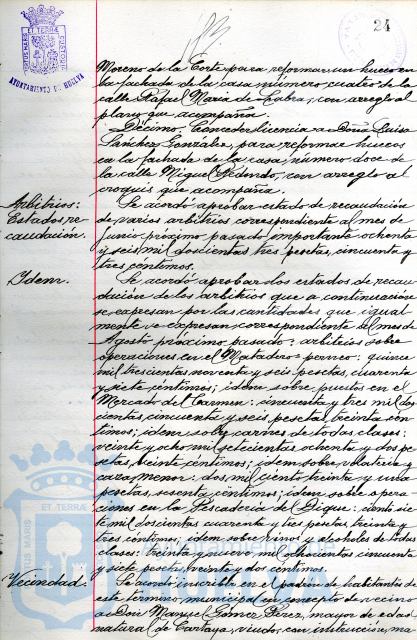 24
AYUNTAMIENTO DE HUELVA
Moreno de la Corte para reformar un hueco en
la fachada de la casa número cuatro de la
calle Rafael María de Labra, con arreglo al
plano que acompaña.
Décimo. Conceder licencia a Doña Luisa
Sánchez González, para reformar huecos
en la fachada de la casa, número doce de
la calle Miguel Redondo, con arreglo al
croquis que acompaña.
Arbitrios: Se acordó aprobar estado de recaudación
Estados re- de varios arbitrios correspondiente al mes de
caudación. Junio próximo pasado importante ochenta
y seis mil doscientas tres pesetas, cincuenta y
tres céntimos.
Idem. Se acordó aprobar los estados de recau-
dación de los arbitrios que a continuación
se expresan por las cantidades que igual
mente se expresan correspondiente al mes de
Agosto próximo pasado: arbitrios sobre
operaciones en el Matadero: quince
mil trescientas noventa y seis pesetas, cuarenta
y siete céntimos; idem sobre puestos en el
Mercado del Carmen: cincuenta y tres mil dos
cientas cincuenta y seis pesetas, treinta cén
timos; idem sobre carnes de todas clases:
veinte y ocho mil setecientas ochenta y dos pe
setas, veinte céntimos; idem sobre volatería y
caza menor: dos mil ciento treinta y una
pesetas, sesenta céntimos; idem sobre opera
ciones en la Pescadería del Dique: ciento sie
te mil doscientas cuarenta y tres pesetas, treinta y
tres céntimos; idem sobre vinos y alcoholes de todas
clases: treinta y nueve mil ochocientas cincuenta
y siete pesetas, veinte y dos céntimos.
Vecindad: Se acordó inscribir en el padrón de habitantes de
este término municipal en concepto de vecino
a Don Manuel Gómez Pérez, mayor de edad
natural de Cartaya, viudo, con instrucción, ma